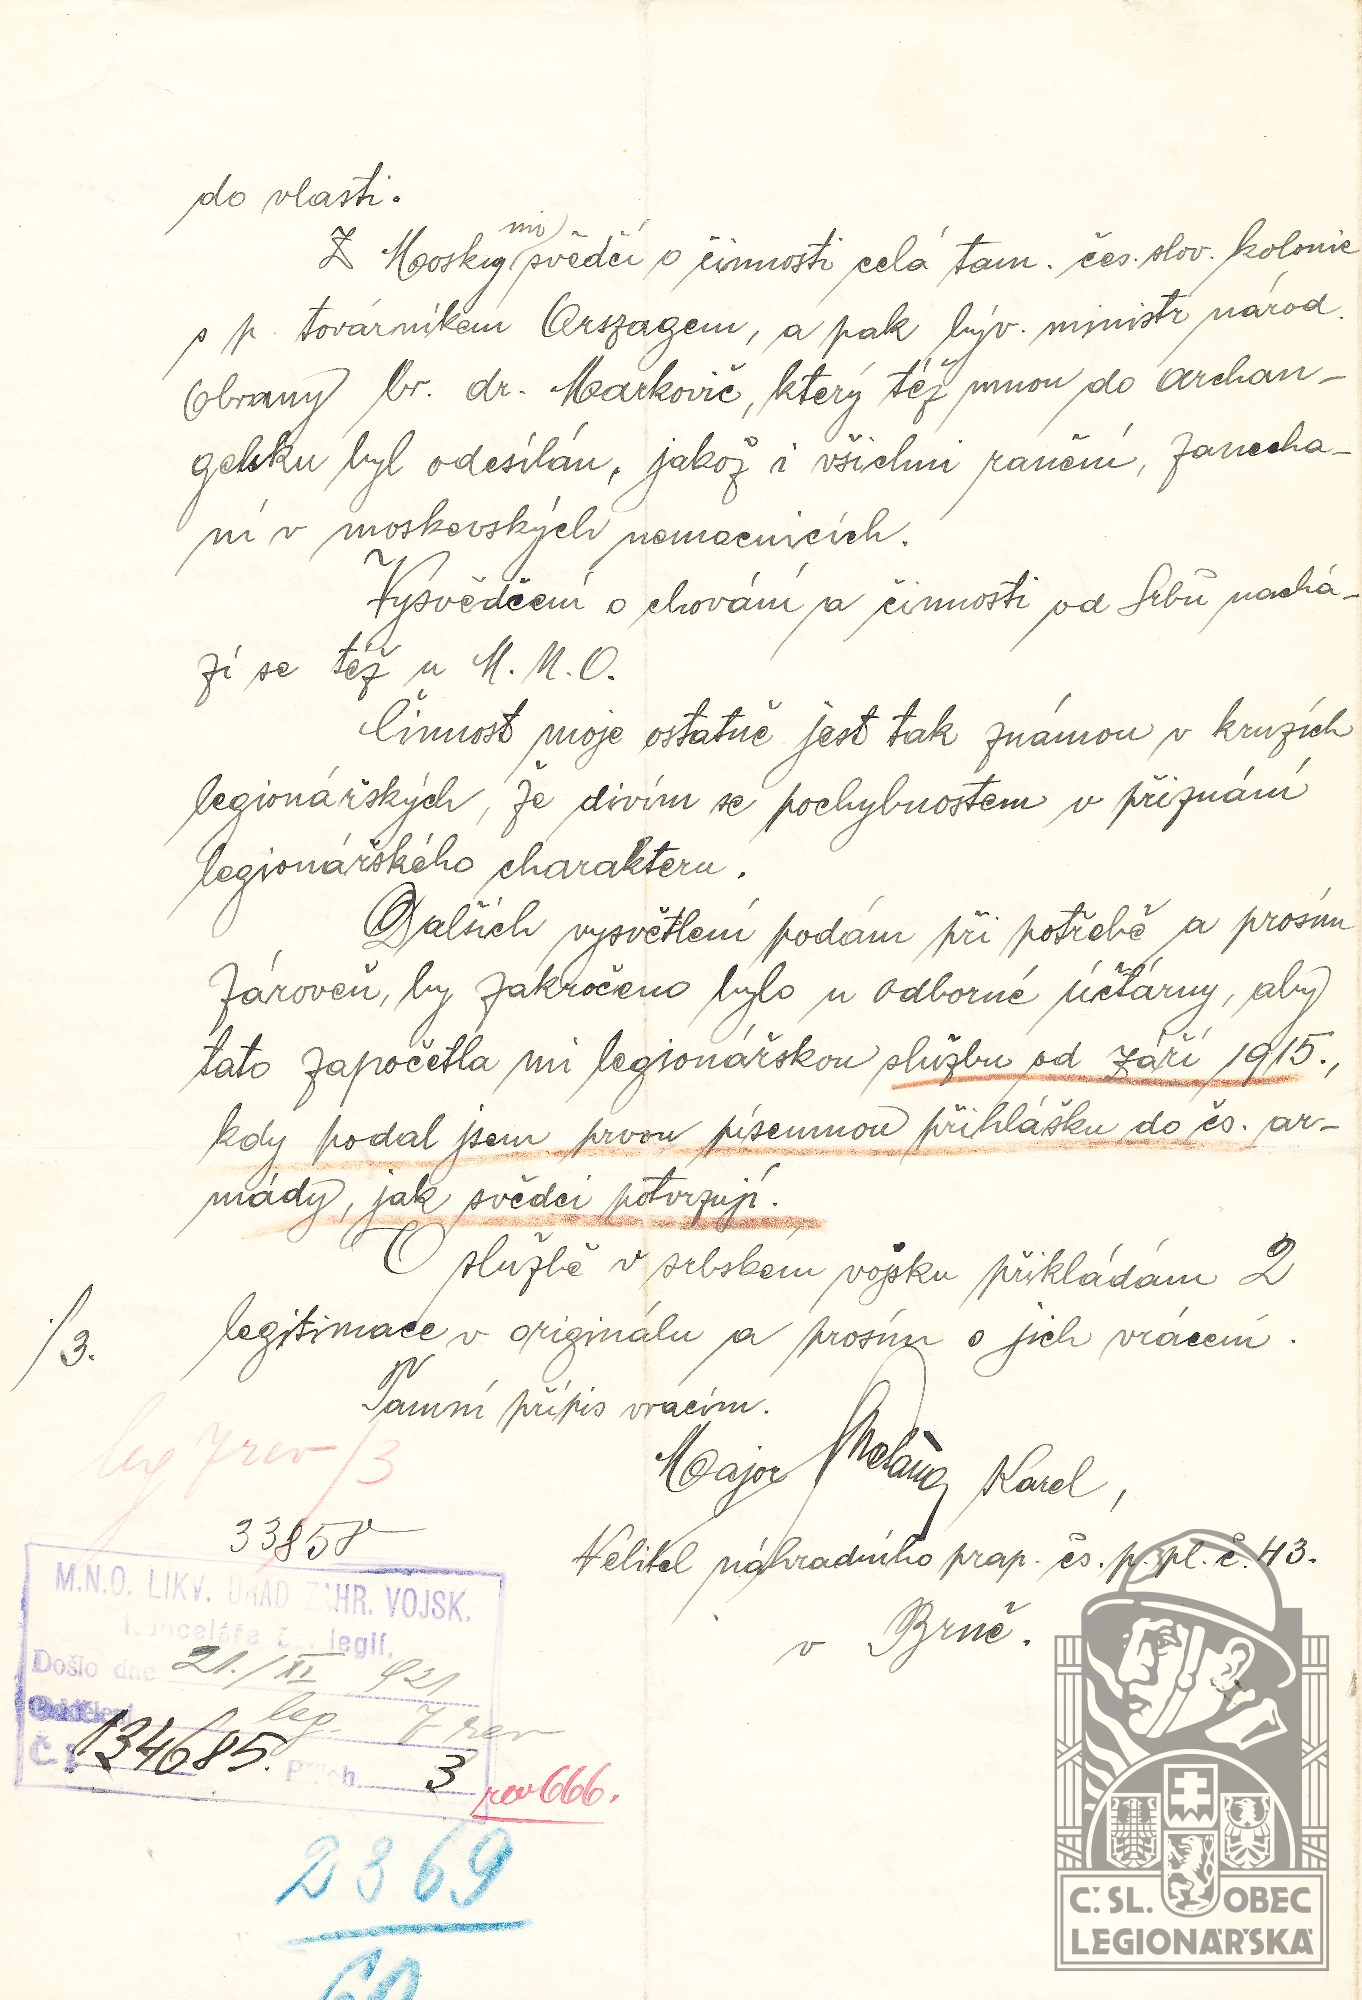 do vlasti.
Z Moskvy mi svědčí o činnosti celá tam. čes. slov. kolonie
s p. továrníkem Orszagem, a pak býv. ministr národ.
obrany br. dr. Markovič, který též mnou do Archan-
gelsku byl odesílán, jakož i všichni ranění, zanecha-
ní v moskevských nemocnicích.
Vysvědčení o chování a činnosti od Srbů nachá-
zí se též u M. N. O.
Činnost moje ostatně jest tak známou v kruzích
legionářských, že divím se pochybnostem v přiznání
legionářského charakteru.
Dalších vysvětlení podám při potřebě a prosím
zároveň, by zakročeno bylo u odborné účtárny, aby
tato započetla mi legionářskou službu od září 1915.,
kdy podal jsem prvou písemnou přihlášku do čs. ar-
mády, jak svědci potvrzují.
O službě v srbském vojsku přikládám 2
legitimace v originálu a prosím o jich vrácení.
./3.
Tamní přípis vracím.
leg 7 rev/3
Major Karel,
33858
Velitel náhradního prap. čs. p. pl. č. 43.
v Brně.
M.N.O. LIKV. ÚŘAD ZAHR. VOJSK.
Kanceláře čs. legií.
Došlo dne 21./XI 921
Oddělení leg. 7 rev
Č. j. 134685. Příloh 3
rev 666.
2369
60
Č.SL. OBEC
LEGIONÁŘSKÁ